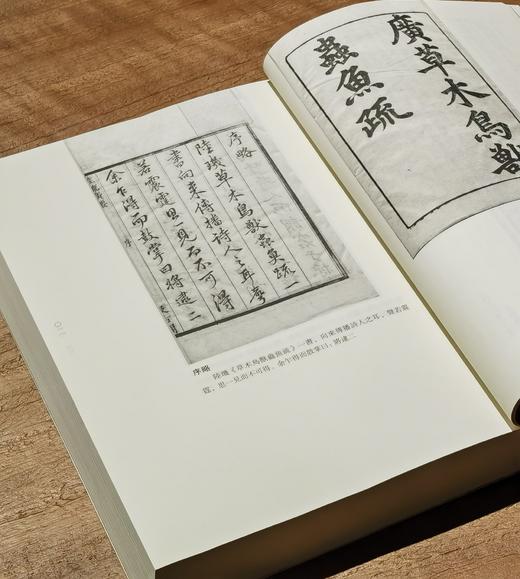 廣草木鳥獸
蟲魚疏
序略
陸璣草木鳥獸蟲魚疏一
書向來傳播詩人之耳聲
若震霆思一見而不可得
余乍得而鼓掌曰將逮二
序略　陸璣《草木鳥獸蟲魚疏》一書，向來傳播詩人之耳，聲若震
霆，思一見而不可得，余乍得而鼓掌曰：將逮二